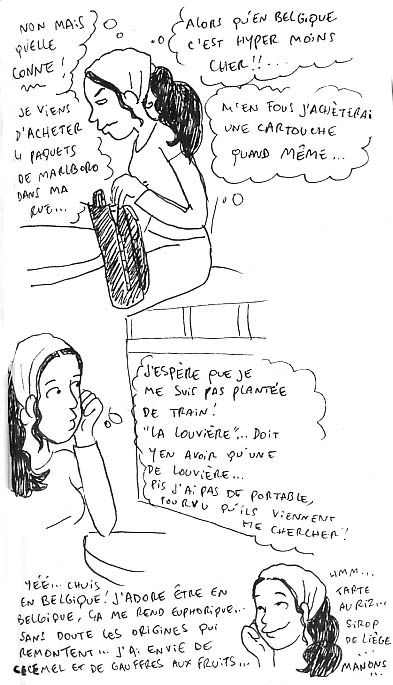 NON MAIS
QUELLE
CONNE !
JE VIENS
D'ACHETER
4 PAQUETS
DE MARLBORO
DANS MA
RUE...
ALORS QU'EN BELGIQUE
C'EST HYPER MOINS
CHER!!...
M'EN FOUS J'ACHÈTERAI
UNE CARTOUCHE
QUAND MÊME...
J'ESPÈRE QUE JE
ME SUIS PAS PLANTÉE
DE TRAIN!
"LA LOUVIÈRE"... DOIT
Y EN AVOIR QU'UNE
DE LOUVIÈRE...
PIS J'AI PAS DE PORTABLE,
POURVU QU'ILS VIENNENT
ME CHERCHER!
YÉÉ... CHUIS
EN BELGIQUE! J'ADORE ÊTRE EN
BELGIQUE, ÇA ME REND EUPHORIQUE...
SANS DOUTE LES ORIGINES QUI
REMONTENT... J'AI ENVIE DE
CECEMEL ET DE GAUFFRES AUX FRUITS...
HMM...
TARTE
AU RIZ...
SIROP
DE LIÈGE
...
MANONS
...